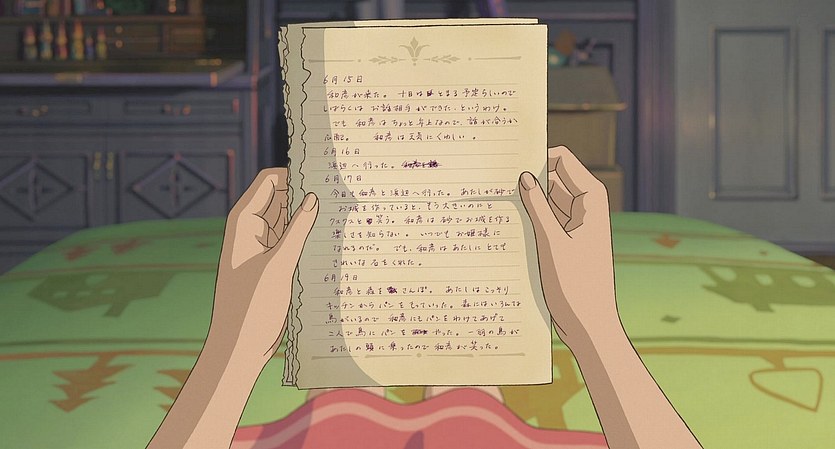 6月15日
和彦が来た。十日ほどとまる予定らしいので
しばらくは お話相手ができた、というわけ。
でも 和彦はちょっと年上なので、話が合うか
心配。 和彦は星にくわしい。
6月16日
海辺へ行った。
6月17日
今日も和彦と海辺へ行った。あたしが砂で
お城を作っていると、もう大きいのにと
クスクスと笑う。和彦は砂でお城を作る
楽しさを知らない。いつでもお姫様に
なれるのだ。でも、和彦はあたしにとても
きれいな石をくれた。
6月19日
和彦と森をさんぽ。あたしはこっそり
キッチンからパンをもっていった。森にはいろんな
鳥がいるので 和彦にもパンをわけてあげて
二人で鳥にパンをやった。一羽の鳥が
あたしの頭に乗ったので和彦が笑った。